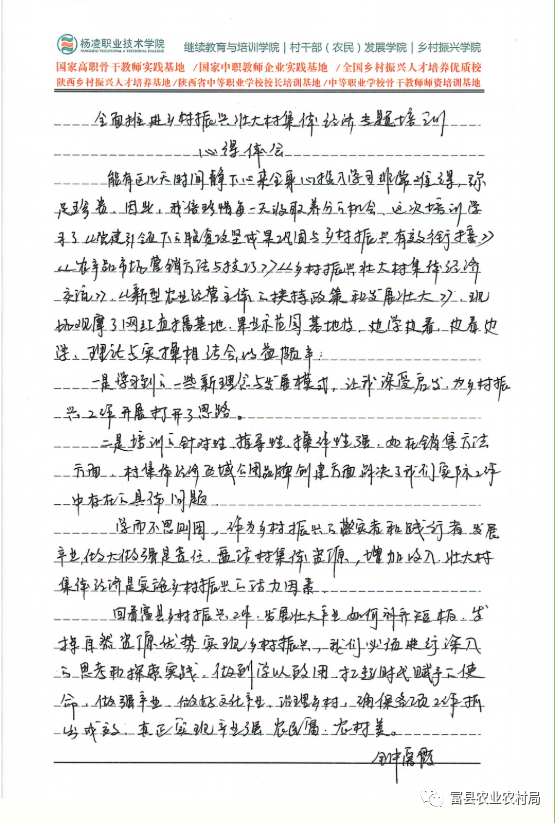 杨凌职业技术学院 继续教育与培训学院|村干部(农民)发展学院|乡村振兴学院
国家高职骨干教师实践基地 /国家中职教师企业实践基地 /全国乡村振兴人才培养优质校
陕西乡村振兴人才培养基地/陕西省中等职业学校校长培训基地/中等职业学校骨干教师师资培训基地
全面推进乡村振兴壮大村集体经济专题培训
心得体会
能有这几天时间静下心来全身心投入学习非常难得,弥
足珍贵。因此,我倍珍惜每一天汲取养分的机会。这次培训学
习了《党建引领下的脱贫攻坚成果巩固与乡村振兴有效衔接》
《农产品市场营销方法与技巧》《乡村振兴壮大村集体经济
交流》、《新型农业经营主体的扶持政策和发展壮大》,现
场观摩了网红直播基地、果业示范园基地,边学边看,边看边
进,理论与实操相结合,收益颇丰:
一是学习到了一些新理念与发展模式,让我深受启发,为乡村振
兴工作开展打开了思路。
二是培训的针对性、指导性、操作性强,如在销售方法
方面、村集体经济区域公用品牌创建方面解决了我们实际工作
中存在的具体问题。
学而不思则罔,作为乡村振兴的实者和践行者,发展
产业,做大做强是责任,盘活村集体资源,增加收入,壮大村
集体经济是实施乡村振兴的动力因素。
回看富县乡村振兴工作,发展壮大产业如何补齐短板,发
挥自然资源优势实现乡村振兴,我们必须进行深入
的思考和探索实践,做到学以致用,扛起时代赋予的使
命,做强产业,做好文化产业,治理乡村,确保各项工作抓
出成效,真正实现产业强、农民富、农村美。
富县农业农村局